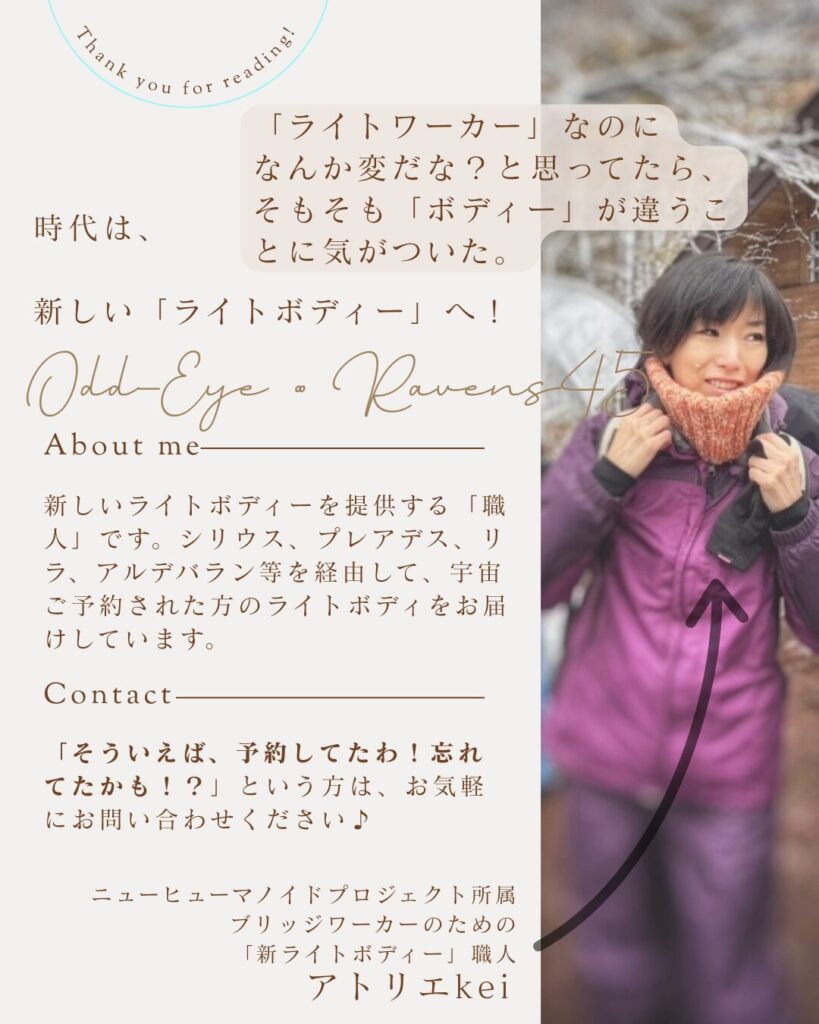 Thank you for reading!
「ライトワーカー」なのに
なんか変だな？と思ってたら、
そもそも「ボディー」が違うこ
とに気がついた。
時代は、
新しい「ライトボディー」へ！
Odd-Eye ∞ Ravens45
About me
新しいライトボディーを提供する「職
人」です。シリウス、プレアデス、リ
ラ、アルデバラン等を経由して、宇宙
ご予約された方のライトボディをお届
けしています。
Contact
「そういえば、予約してたわ！忘れ
てたかも！？」という方は、お気軽
にお問い合わせください♪
ニューヒューマノイドプロジェクト所属
ブリッジワーカーのための
「新ライトボディー」職人
アトリエkei